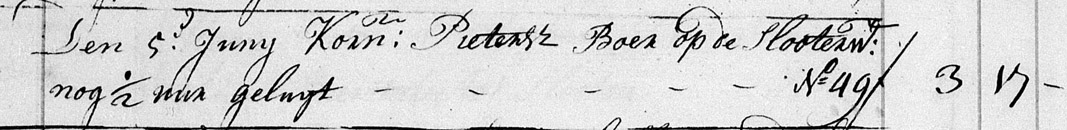 Den 5.d Juny Korn: Pietersz Boer op de Slooterw:
nog 1/2 uur geluyt - - - - - No 49 3 17 -